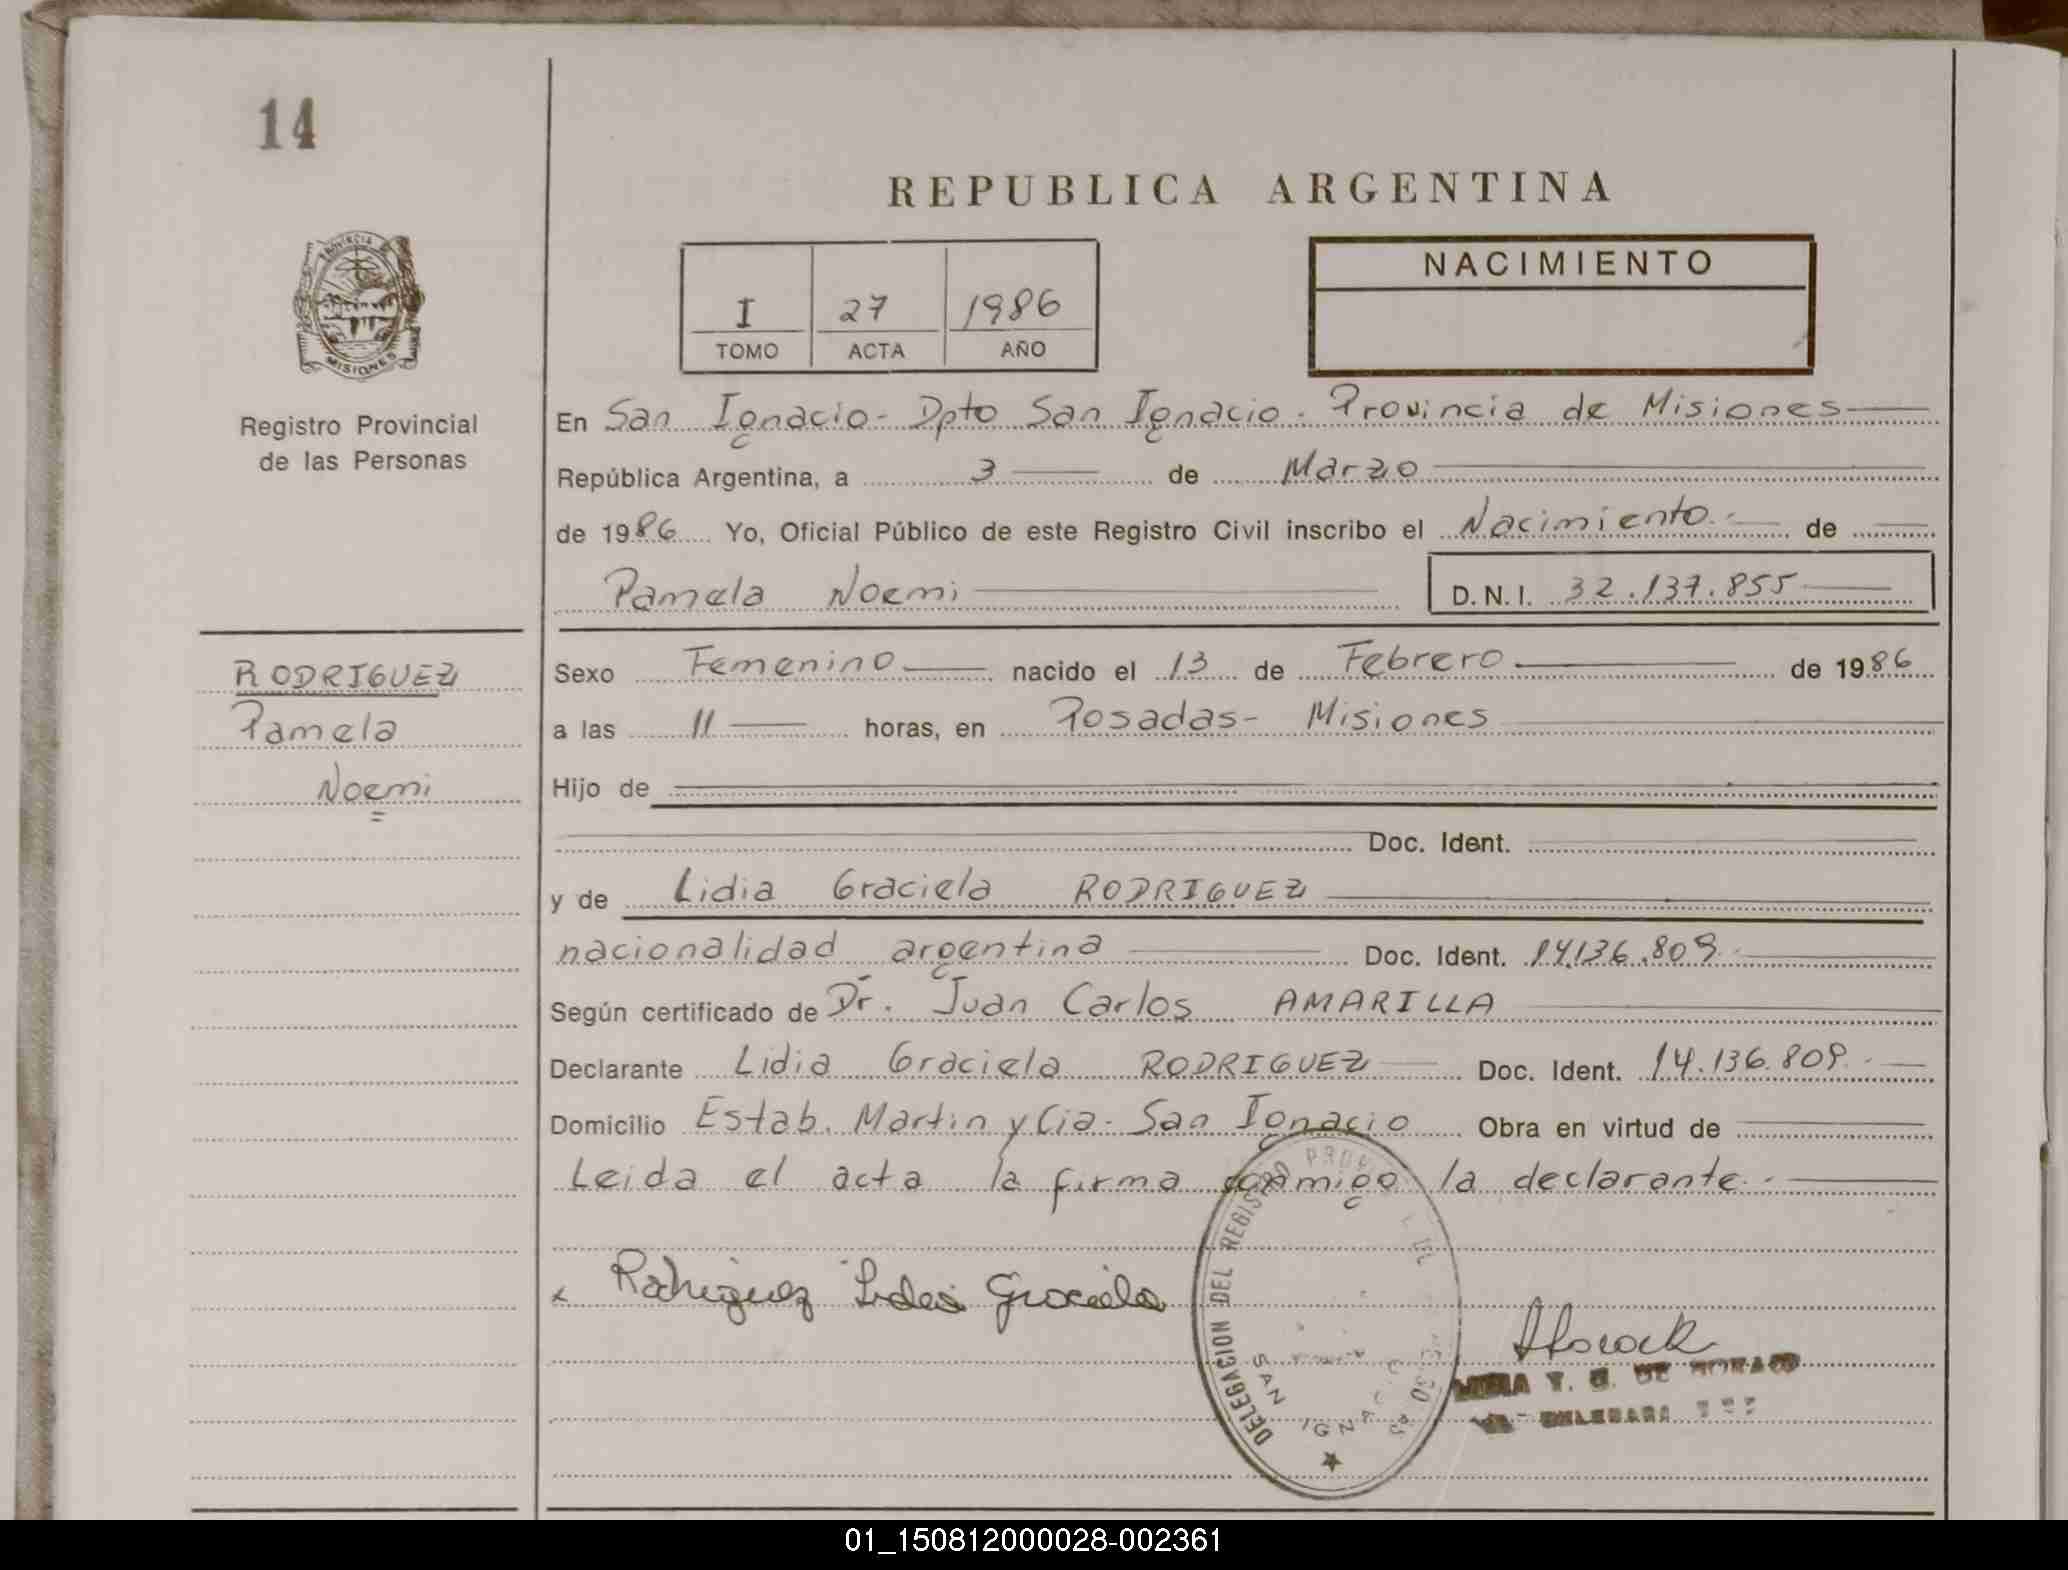 14
REPUBLICA ARGENTINA
PROVINCIA DE
MISIONES
Registro Provincial
de las Personas
I 27 1986
TOMO ACTA AÑO
NACIMIENTO
En San Ignacio - Dpto San Ignacio - Provincia de Misiones
República Argentina, a 3 de Marzo
de 1986 Yo, Oficial Público de este Registro Civil inscribo el Nacimiento.- de
Pamela Noemi D.N.I. 32.137.855
RODRIGUEZ
Pamela
Noemi
Sexo Femenino nacido el 13 de Febrero de 1986
a las 11 horas, en Posadas- Misiones
Hijo de
Doc. Ident.
y de Lidia Graciela RODRIGUEZ
nacionalidad argentina Doc. Ident. 14.136.809.-
Según certificado de Dr. Juan Carlos AMARILLA
Declarante Lidia Graciela RODRIGUEZ Doc. Ident. 14.136.809.-
Domicilio Estab. Martin y Cia- San Ignacio Obra en virtud de
Leida el acta la firma conmigo la declarante.-
x Rodriguez Lidia Graciela
DELEGACION DEL REGISTRO
SAN IGNACIO
01_150812000028-002361